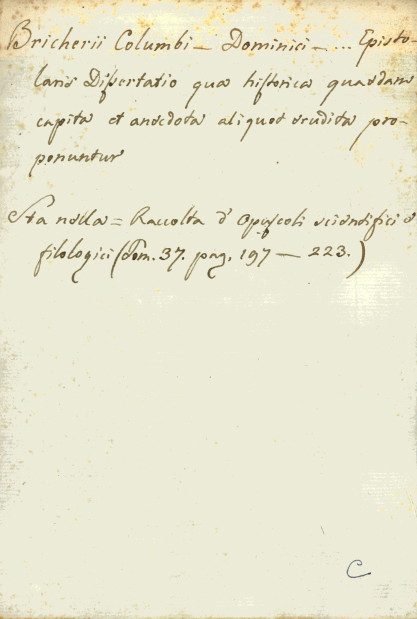 Bricherii Columbi - Dominici - ... Episto-
laris Dissertatio qua historica quaedam
capita et anecdota aliquot erudita pro-
ponuntur
Sta nella = Raccolta d'Opuscoli scientifici e
filologici (Tom. 37. pag. 197 - 223.)
C